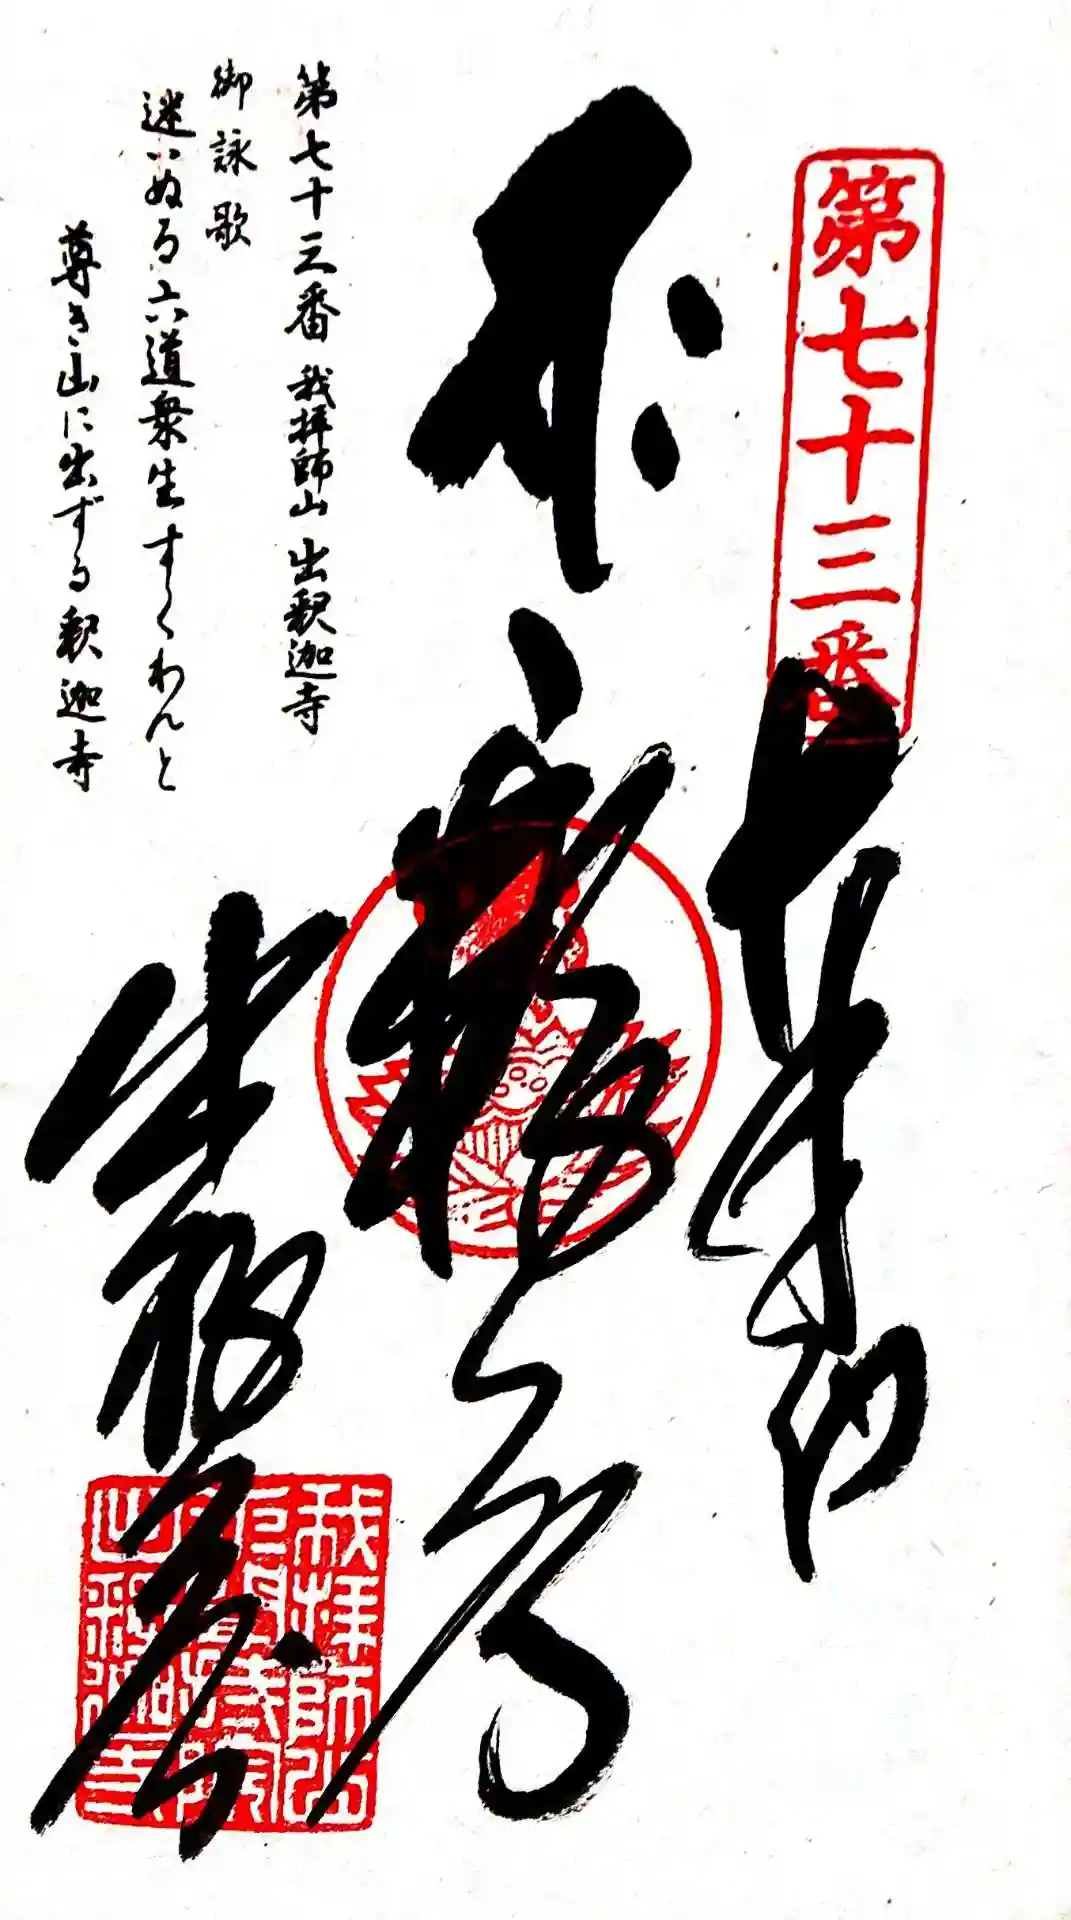 第七十三番
奉納
出釈迦寺
我拝師山
求聞持院
出釈迦寺
第七十三番 我拝師山 出釈迦寺
御詠歌
迷いぬる六道衆生すくわんと
尊き山に出ずる釈迦寺